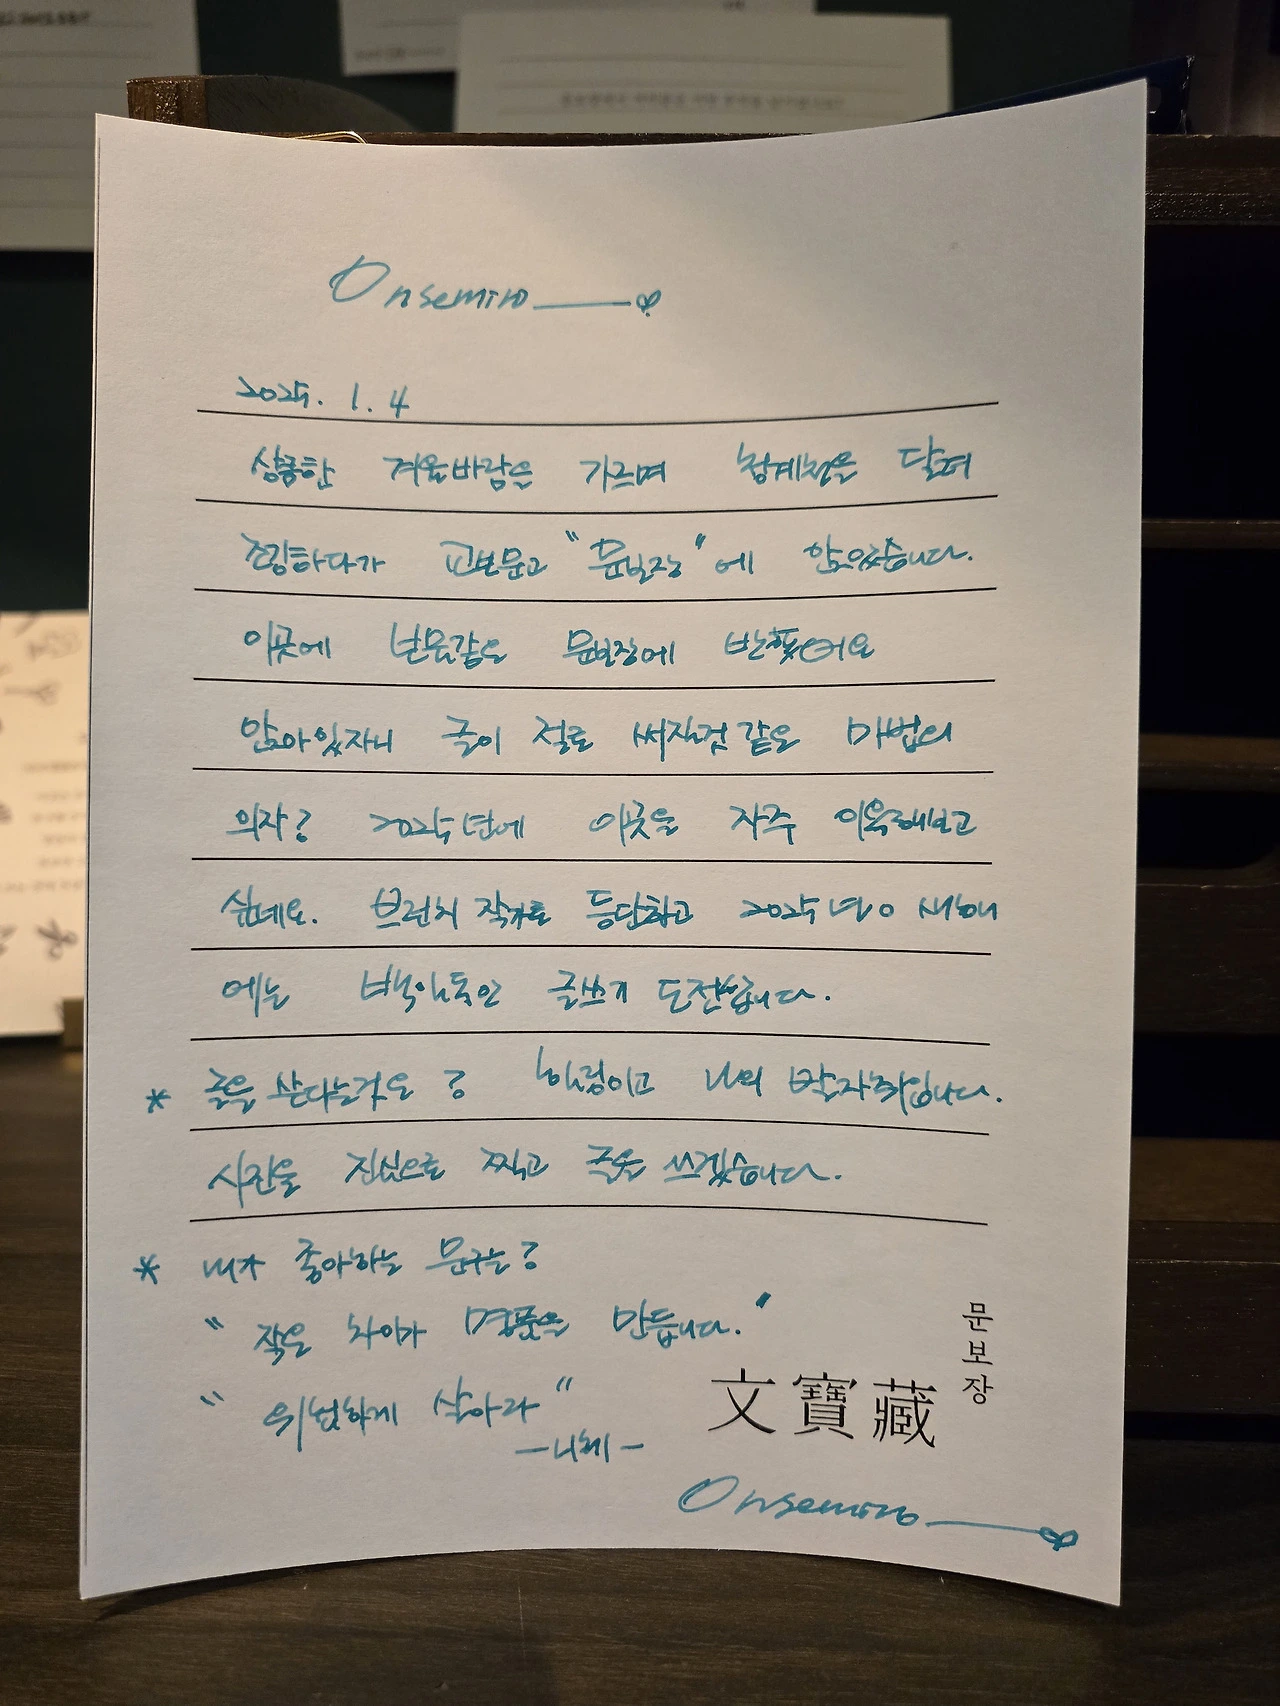 Onsemiro
2025. 1. 4
상쾌한 겨울바람을 가르며 청계천을 달려
조깅하다가 교보문고 "문보장"에 앉았습니다.
이곳에 보물같은 문보장에 반했어요
앉아있자니 글이 절로 써질것 같은 마법의
의자? 2025년에 이곳을 자주 이용해보고
싶네요. 브런치 작가로 등단하고 2025년 새해
에는 백일동안 글쓰기 도전합니다.
* 글을 쓴다는것은? 힐링이고 나의 발자취입니다.
사진을 진심으로 찍고 글을 쓰겠습니다.
* 내가 좋아하는 문구는?
" 작은 차이가 명품을 만듭니다. "
" 위험하게 살아라 "
- 니체 -
문보장
文寶藏
Onsemiro